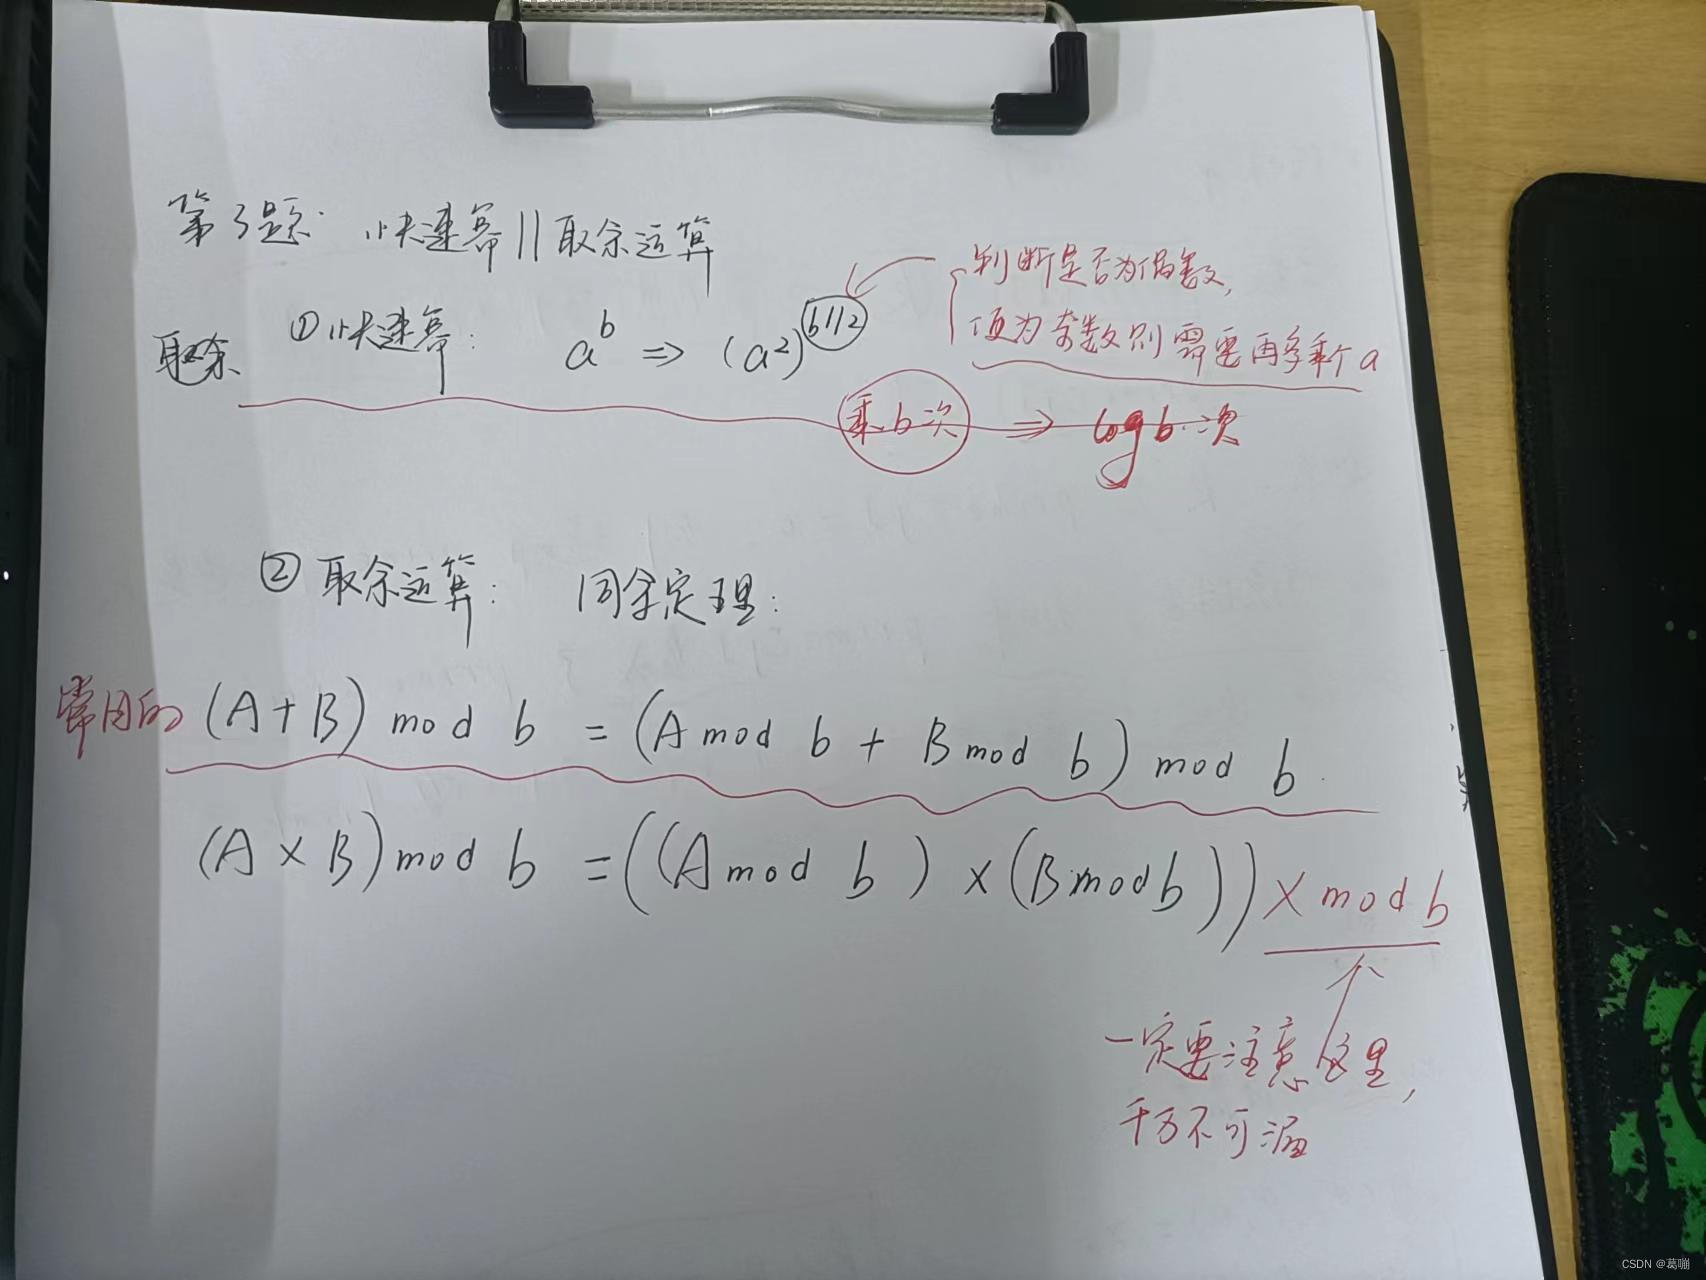 第3题: 快速幂||取余运算
判断是否为偶数,
值为奇数则需要再多乘个a
取余 ①快速幂: a^b ⇒ (a²)^(b//2)
乘b次 ⇒ log b次
②取余运算: 同余定理:
常用的 (A+B) mod b = (A mod b + B mod b) mod b.
(A × B) mod b = ((A mod b) × (B mod b)) × mod b
一定要注意这里,
千万不可漏
CSDN @葛嘣